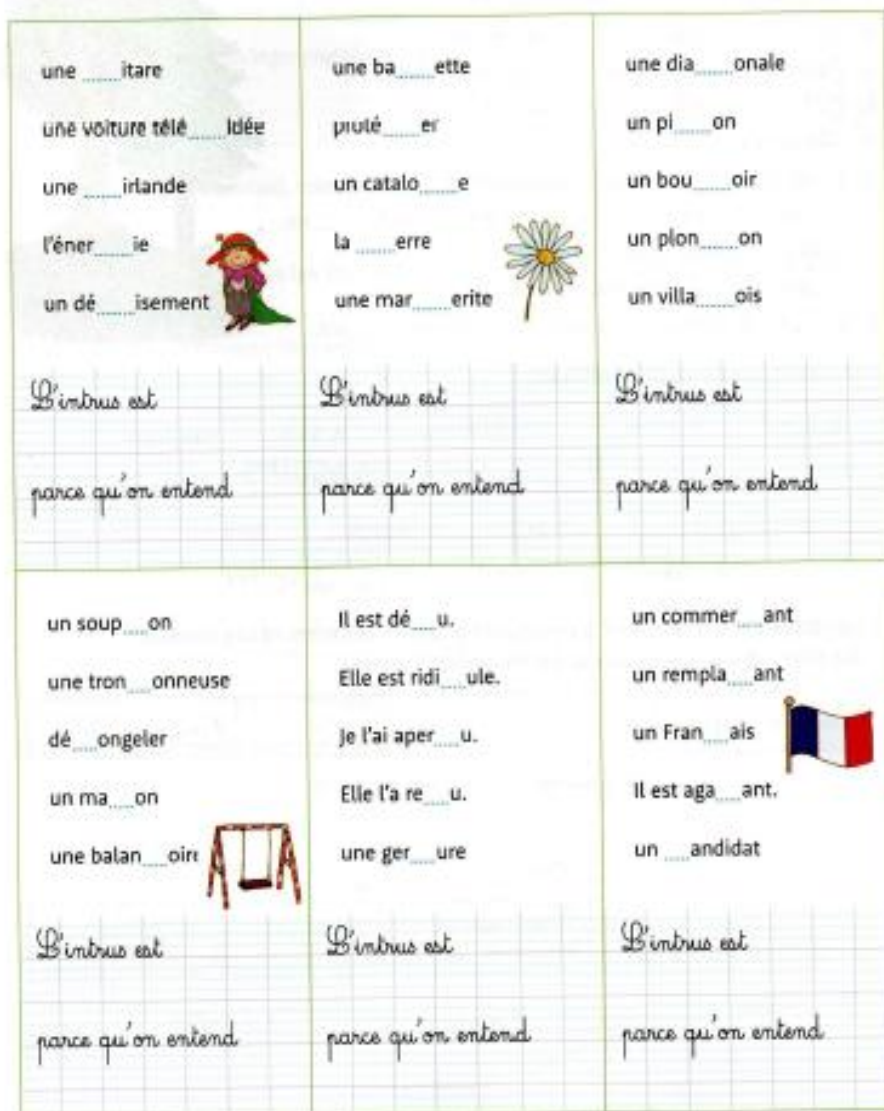 une .....itare
une voiture télé.....idée
une .....irlande
l'éner.....ie
un dé.....isement
L'intrus est
parce qu'on entend
une ba.....ette
proté.....er
un catalo.....e
la .....erre
une mar.....erite
L'intrus est
parce qu'on entend
une dia.....onale
un pi.....on
un bou.....oir
un plon.....on
un villa.....ois
L'intrus est
parce qu'on entend
un soup.....on
une tron.....onneuse
dé.....ongeler
un ma.....on
une balan.....oire
L'intrus est
parce qu'on entend
Il est dé.....u.
Elle est ridi.....ule.
Je l'ai aper.....u.
Elle l'a re.....u.
une ger.....ure
L'intrus est
parce qu'on entend
un commer.....ant
un rempla.....ant
un Fran.....ais
Il est aga.....ant.
un .....andidat
L'intrus est
parce qu'on entend